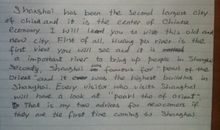 Shanghai has been the second largest city
of china and it is the center of Chinese
economy. I will lead you to visit this old and
new city. First of all, Huang pu river is the
first view you will see and it is
a important river to bring up people in Shanghai
Secondly, Shanghai famous for "pearl of the
orient" and it was the highest building in
Shanghai. Every visitor who visits Shanghai
will have a look at "pearl the of orient".
That is my two advises for newcomers if
they are the first time coming to Shanghai